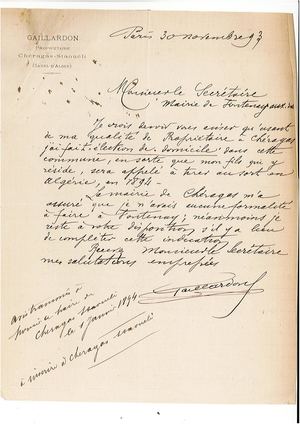 GAILLARDON
PROPRIÉTAIRE
Chéragas-Staouëli
(SAHEL D'ALGER)
Paris 30 novembre 93
Monsieur le Secrétaire
Mairie de Fontenay aux
Je crois devoir vous aviser qu'usant
de ma qualité de Propriétaire à Chéragas
j'ai fait élection de domicile dans cette
commune, en sorte que mon fils qui y
réside, sera appelé à tirer au sort en
Algérie, en 1894 –
La mairie de Chéragas m'a
assuré que je n'avais aucune formalité
à faire à Fontenay; néanmoins je
reste à votre disposition s'il y a lieu
de compléter cette indication
Recevez Monsieur le Secrétaire
mes salutations empressées
Gaillardon
avis transmis à
Monsieur le Maire de
Cheragas Staoueli
le 1 janvier 1894
à Cheragas Staoueli